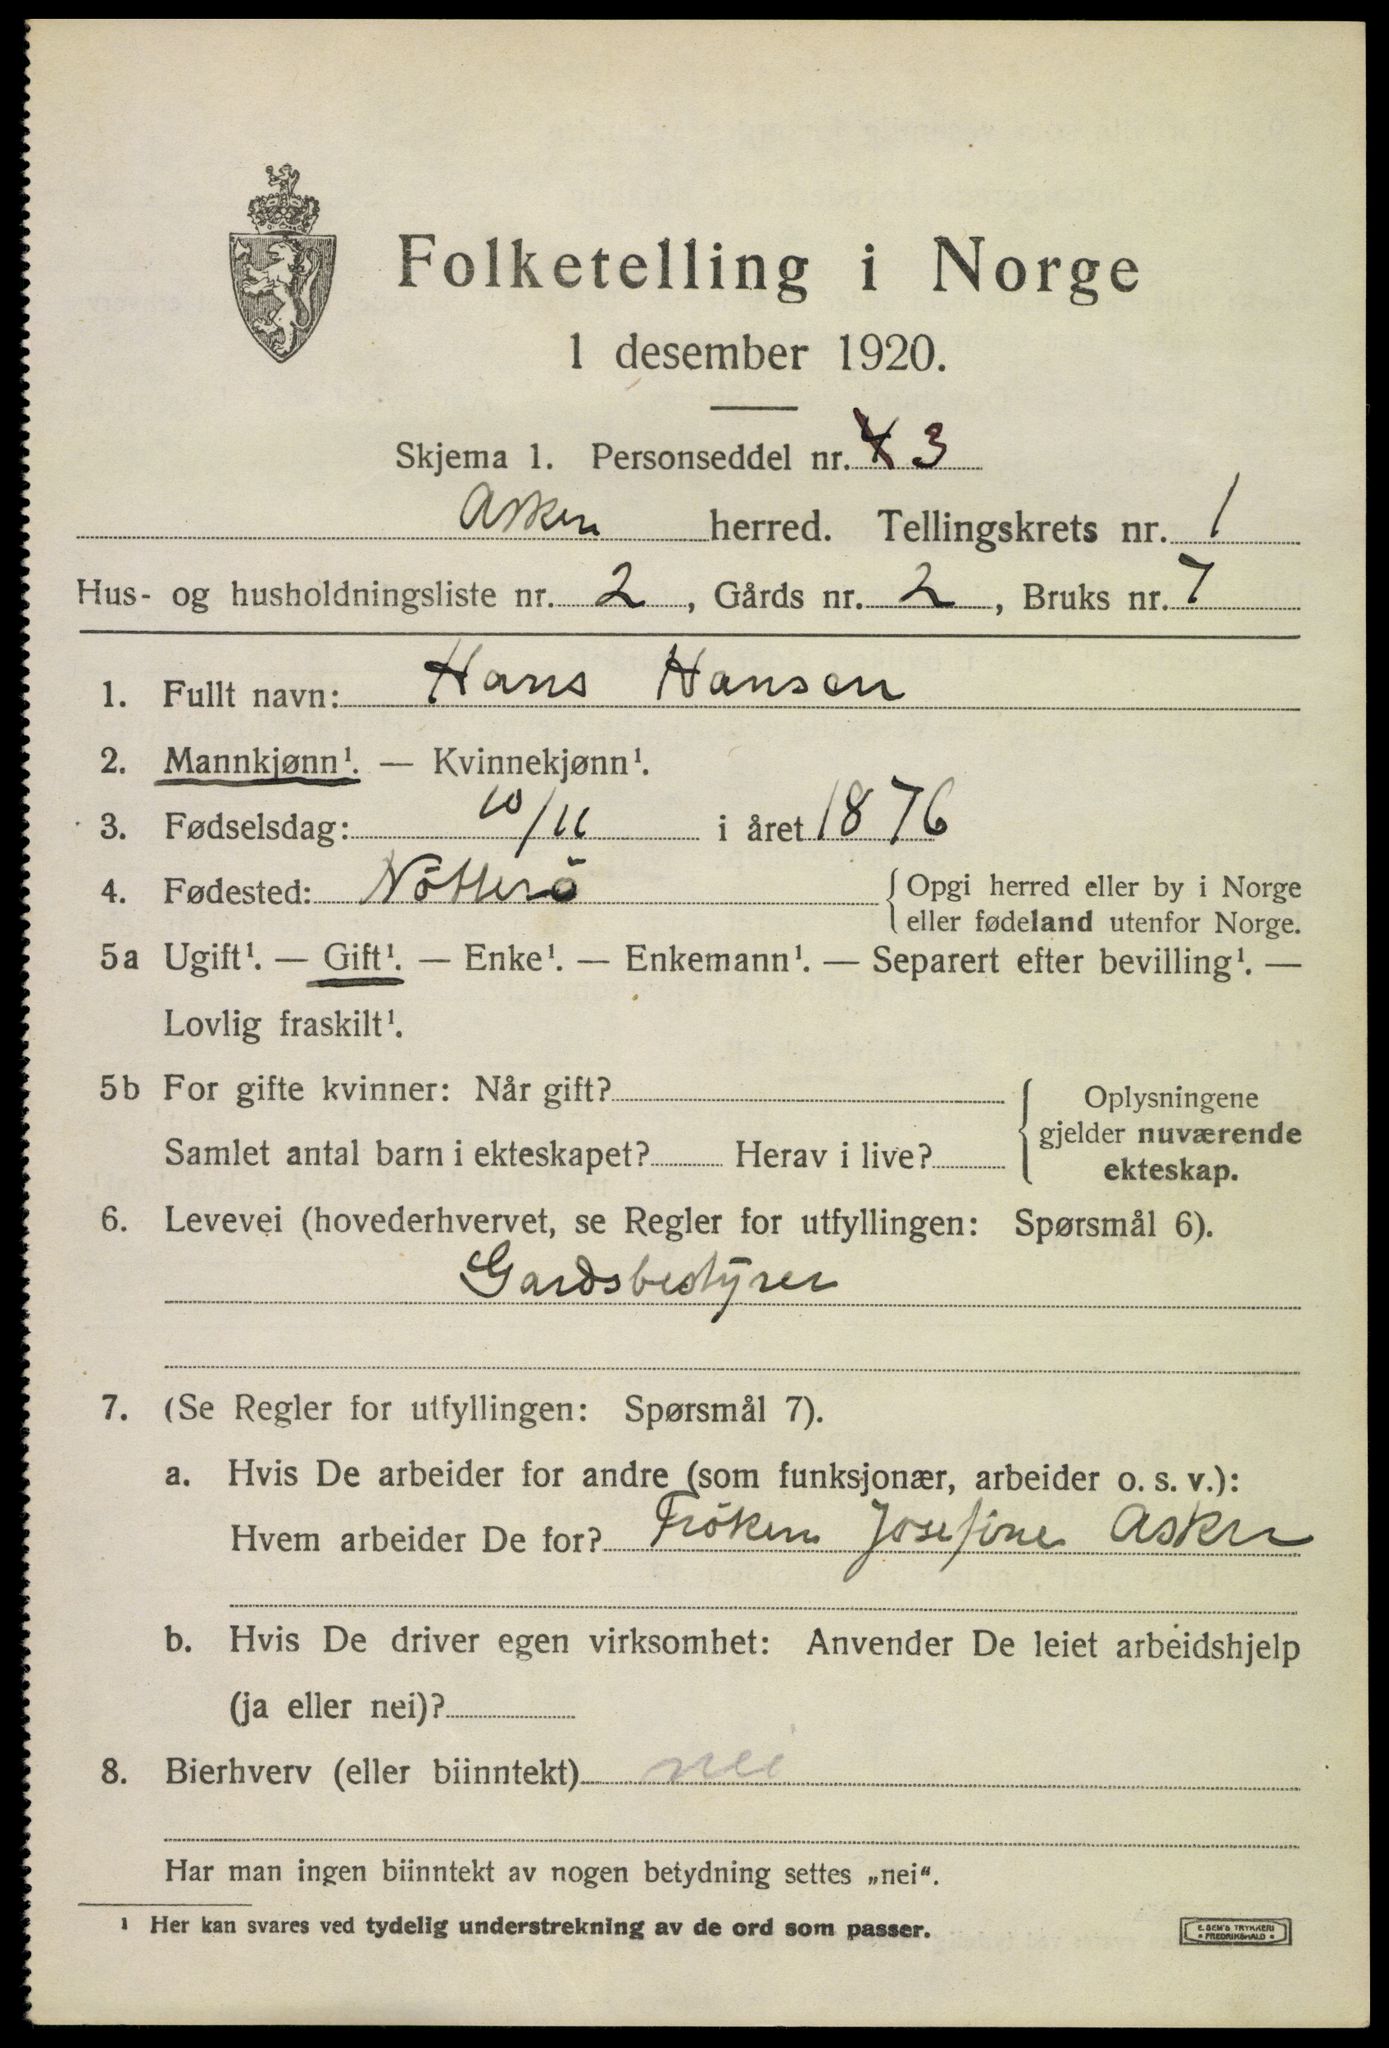 Folketelling i Norge
1 desember 1920.
Skjema 1. Personseddel nr. 4 3
Asker herred. Tellingskrets nr. 1
Hus- og husholdningsliste nr. 2, Gårds nr. 2, Bruks nr. 7
1. Fullt navn: Hans Hansen
2. Mannkjønn¹. — Kvinnekjønn¹.
3. Fødselsdag: 10/11 i året 1876
4. Fødested: Nötterö {Opgi herred eller by i Norge
eller fødeland utenfor Norge.
5a Ugift¹. — Gift¹. — Enke¹. — Enkemann¹. — Separert efter bevilling¹. —
Lovlig fraskilt¹.
5b For gifte kvinner: Når gift?
Samlet antal barn i ekteskapet? Herav i live?
Oplysningene
gjelder nuværende
ekteskap.
6. Levevei (hovederhvervet, se Regler for utfyllingen: Spørsmål 6).
Gardsbestyrer
7. (Se Regler for utfyllingen: Spørsmål 7).
a. Hvis De arbeider for andre (som funksjonær, arbeider o. s. v.):
Hvem arbeider De for? Fröken Josefine Asker
b. Hvis De driver egen virksomhet: Anvender De leiet arbeidshjelp
(ja eller nei)?
8. Bierhverv (eller biinntekt) nei
Har man ingen biinntekt av nogen betydning settes „nei“.
¹ Her kan svares ved tydelig understrekning av de ord som passer.
E. SEM'S TRYKKERI
• FREDRIKSHALD •